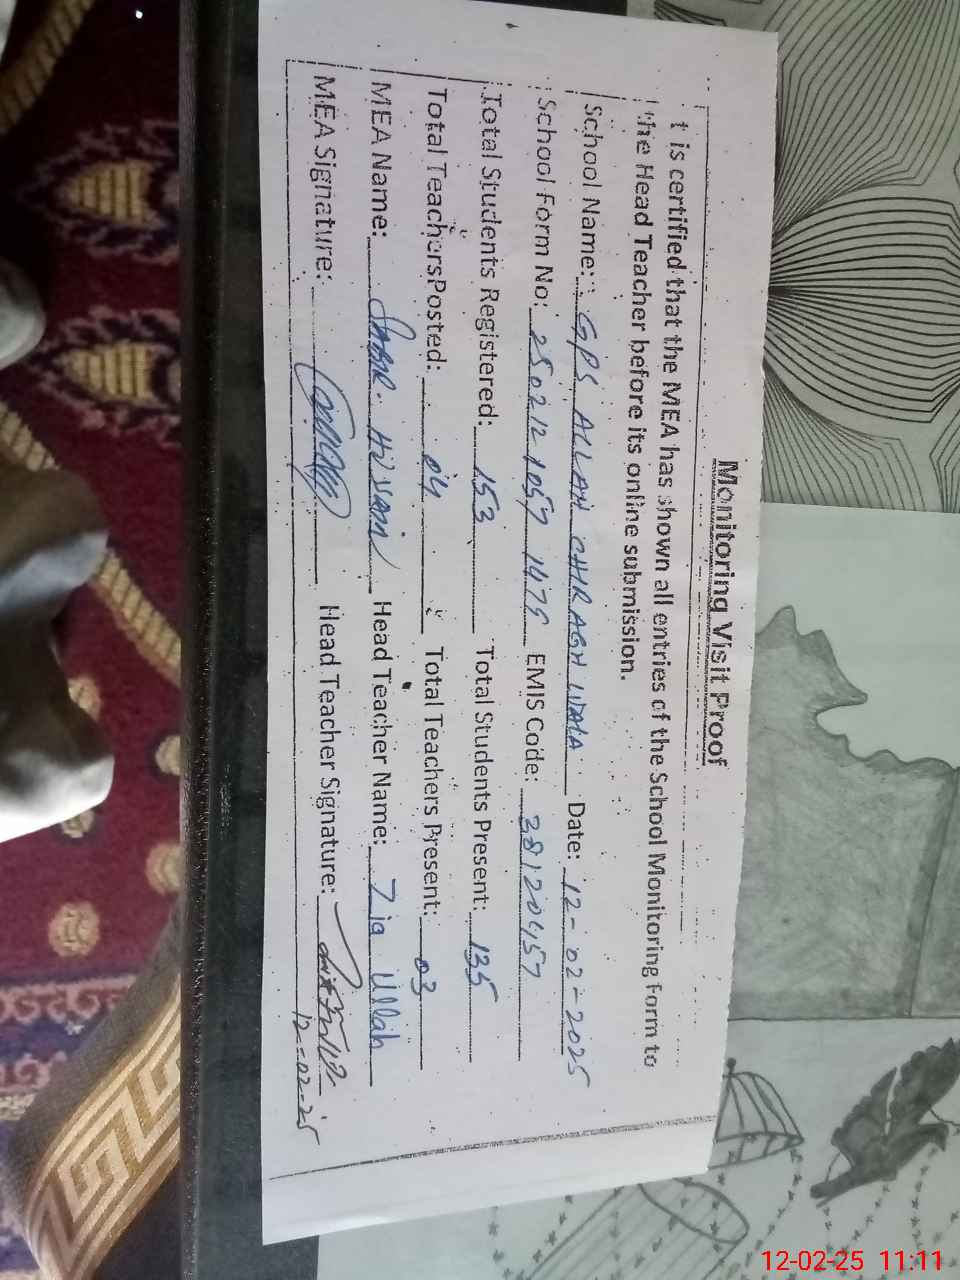 Monitoring Visit Proof
t is certified that the MEA has shown all entries of the School Monitoring Form to
the Head Teacher before its online submission.
School Name: GPS ALLAH CHIRAGH WALA Date: 12-02-2025
School Form No: 250212 1057 1475 EMIS Code: 38120457
Total Students Registered: 153 Total Students Present: 135
Total Teachers Posted: 04 Total Teachers Present: 03
MEA Name: SABIR HUSSAIN Head Teacher Name: Zia Ullah
MEA Signature: Head Teacher Signature:
12-02-25
12-02-25 11:11